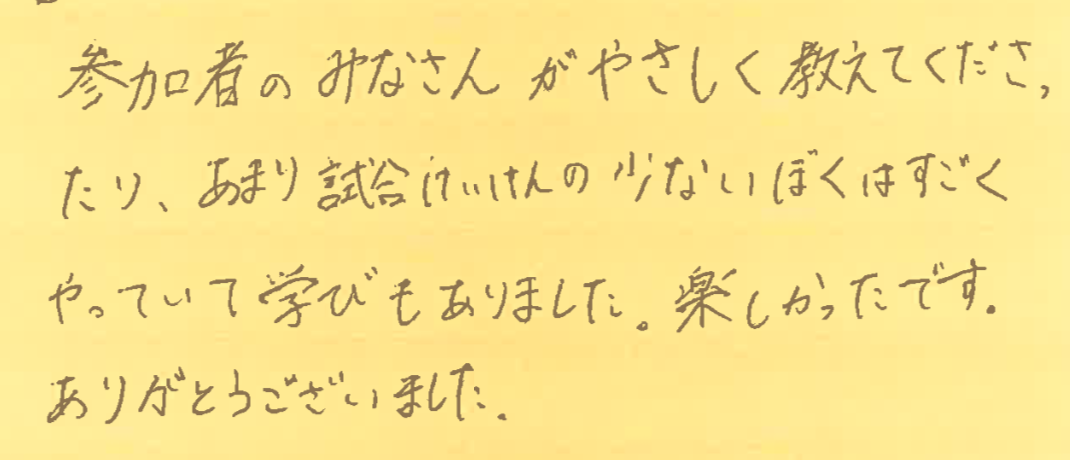 参加者のみなさんがやさしく教えてくださっ
たり、あまり試合けいけんの少ないぼくはすごく
やっていて学びもありました。楽しかったです。
ありがとうございました。